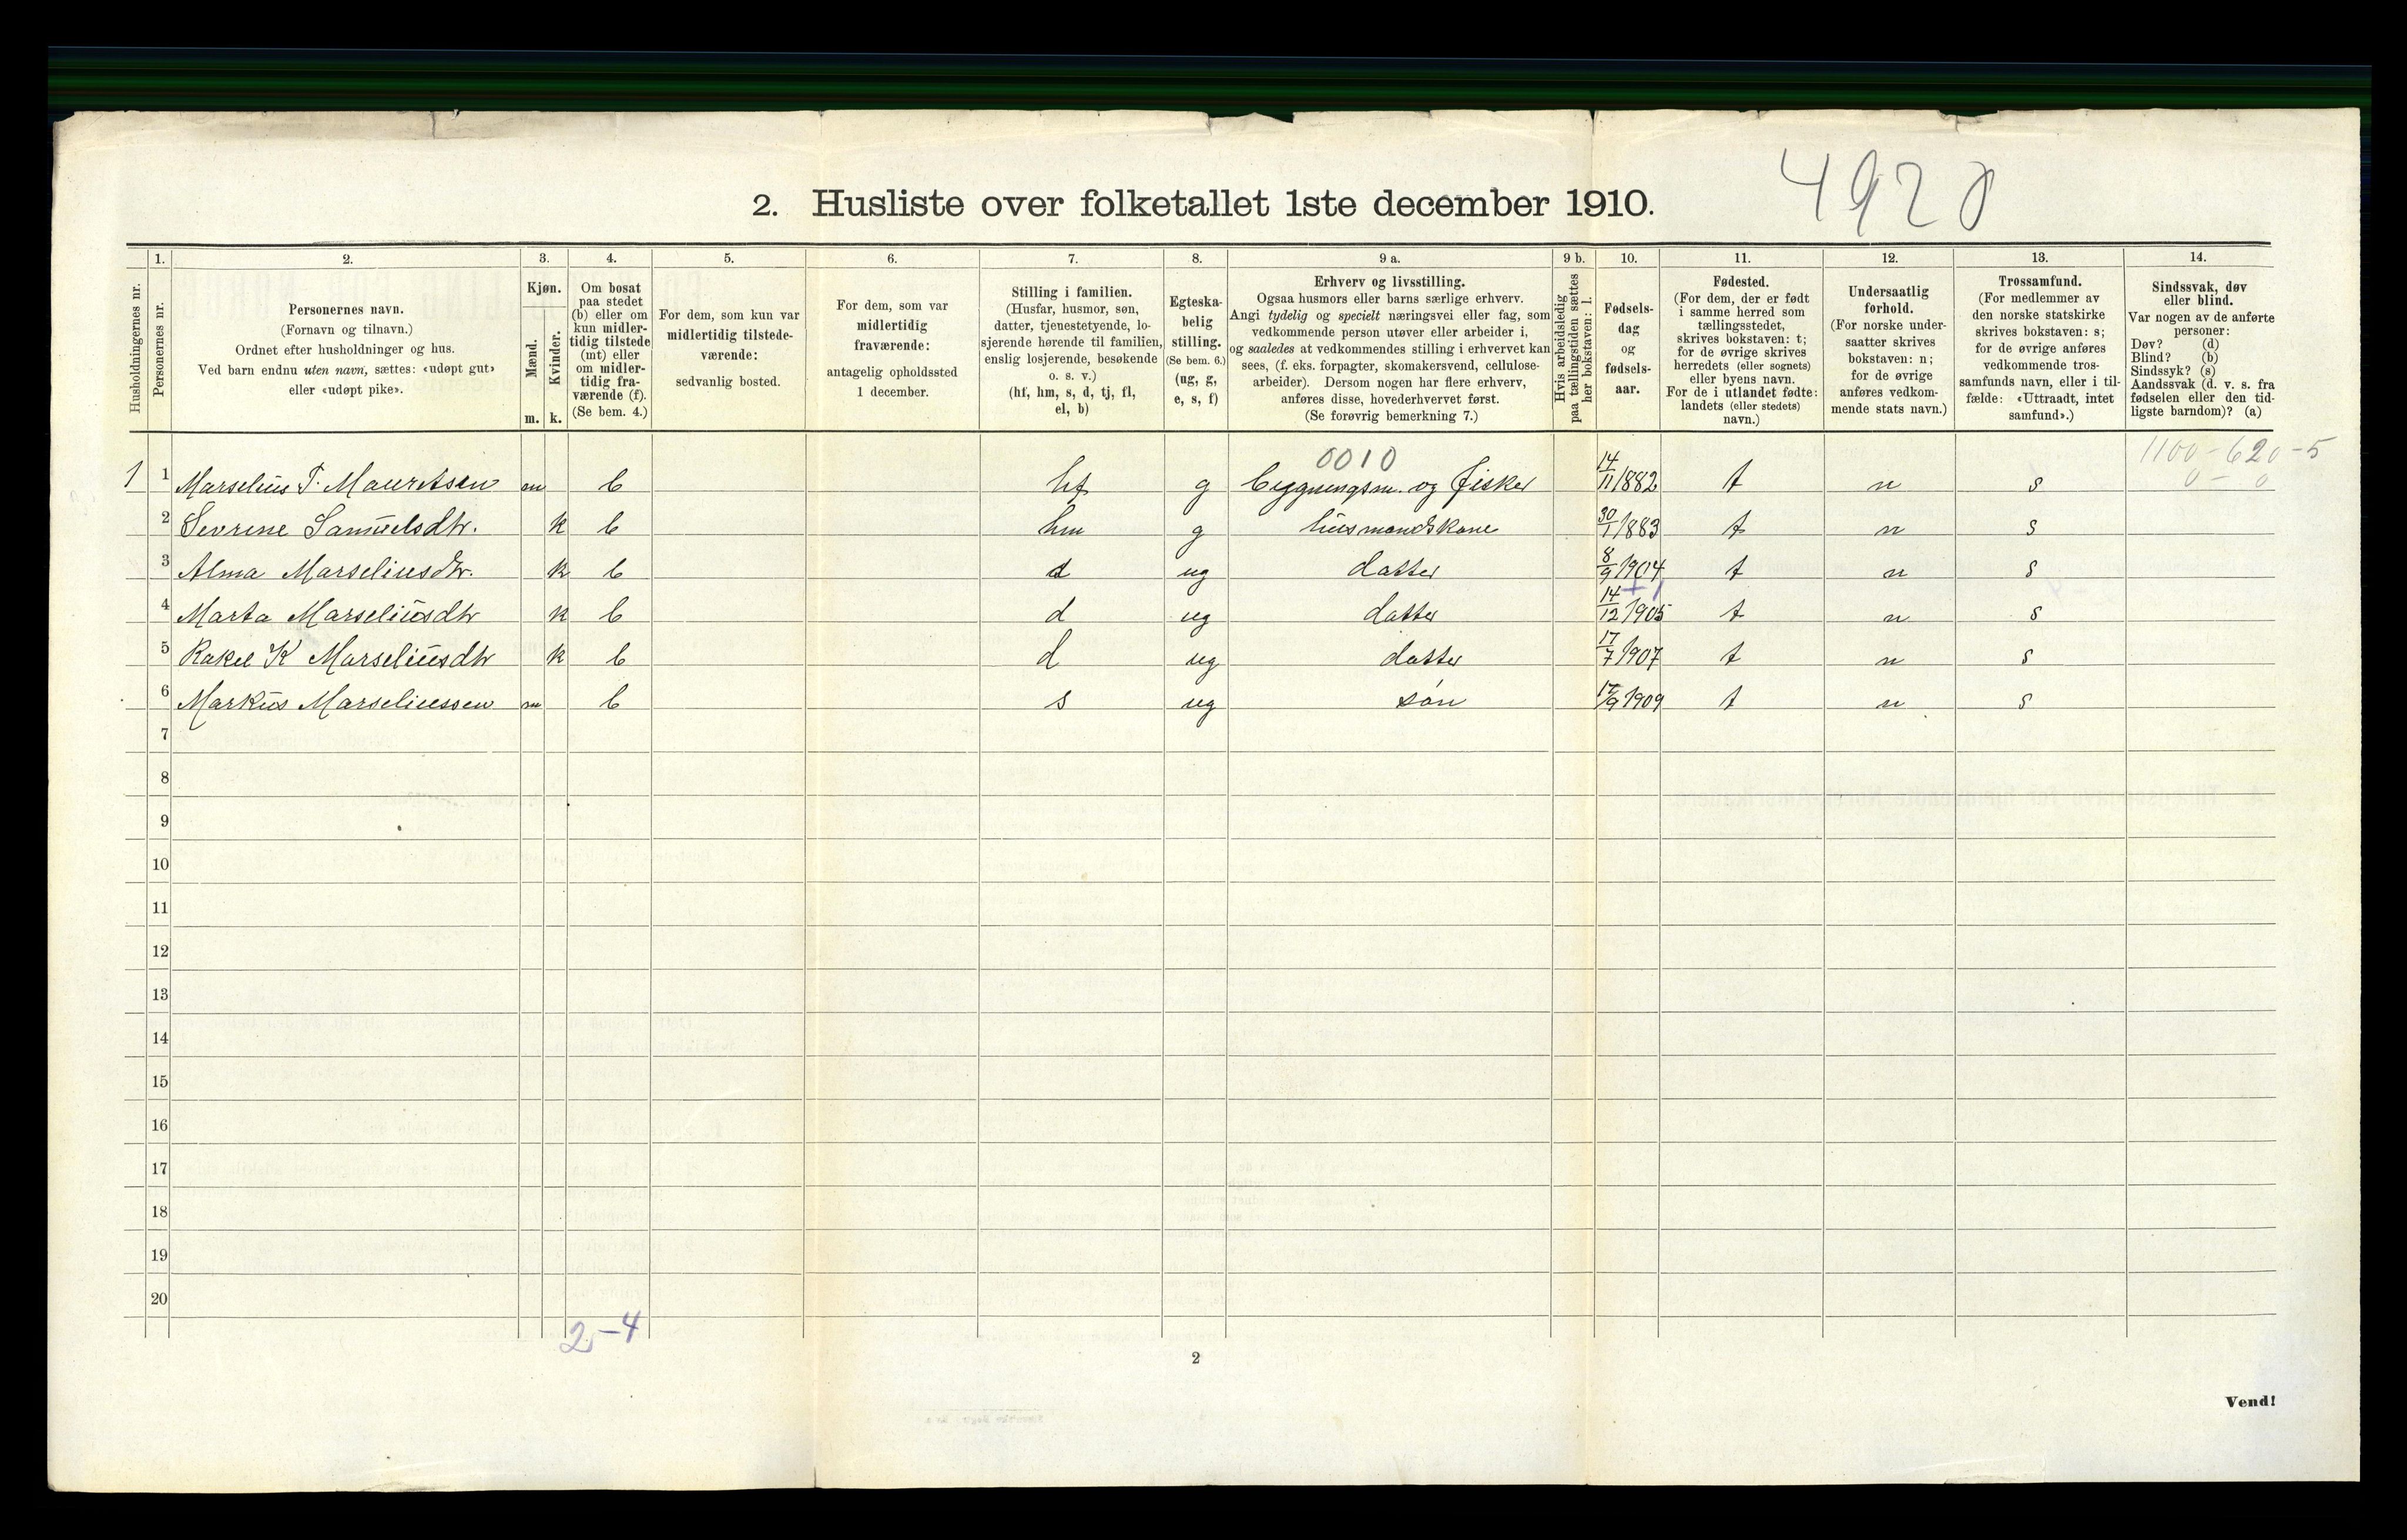 2. Husliste over folketallet 1ste december 1910.
4920
Husholdningernes nr.
1.
Personernes nr.
2.
Personernes navn.
(Fornavn og tilnavn.)
Ordnet efter husholdninger og hus.
Ved barn endnu uten navn, sættes: «udøpt gut»
eller «udøpt pike».
3.
Kjøn.
Mænd.
Kvinder.
m. k.
4.
Om bosat
paa stedet
(b) eller om
kun midler-
tidig tilstede
(mt) eller
om midler-
tidig fra-
værende (f).
(Se bem. 4.)
5.
For dem, som kun var
midlertidig tilstede-
værende:
sedvanlig bosted.
6.
For dem, som var
midlertidig
fraværende:
antagelig opholdssted
1 december.
7.
Stilling i familien.
(Husfar, husmor, søn,
datter, tjenestetyende, lo-
sjerende hørende til familien,
enslig losjerende, besøkende
o. s. v.)
(hf, hm, s, d, tj, fl,
el, b)
8.
Egteska-
belig
stilling.
(Se bem. 6.)
(ug, g,
e, s, f)
9 a.
Erhverv og livsstilling.
Ogsaa husmors eller barns særlige erhverv.
Angi tydelig og specielt næringsvei eller fag, som
vedkommende person utøver eller arbeider i,
og saaledes at vedkommendes stilling i erhvervet kan
sees, (f. eks. forpagter, skomakersvend, cellulose-
arbeider). Dersom nogen har flere erhverv,
anføres disse, hovederhvervet først.
(Se forøvrig bemerkning 7.)
9 b.
Hvis arbeidsledig
paa tællingstiden sættes
her bokstaven: l.
10.
Fødsels-
dag
og
fødsels-
aar.
11.
Fødested.
(For dem, der er født
i samme herred som
tællingsstedet,
skrives bokstaven: t;
for de øvrige skrives
herredets (eller sognets)
eller byens navn.
For de i utlandet fødte:
landets (eller stedets)
navn.)
12.
Undersaatlig
forhold.
(For norske under-
saatter skrives
bokstaven: n;
for de øvrige
anføres vedkom-
mende stats navn.)
13.
Trossamfund.
(For medlemmer av
den norske statskirke
skrives bokstaven: s;
for de øvrige anføres
vedkommende tros-
samfunds navn, eller i til-
fælde: «Uttraadt, intet
samfund».)
14.
Sindssvak, døv
eller blind.
Var nogen av de anførte
personer:
Døv? (d)
Blind? (b)
Sindssyk? (s)
Aandssvak (d. v. s. fra
fødselen eller den tid-
ligste barndom)? (a)
0010
1100-620-5
0 - 0
1 1 Marselius T. Mauritsen m b hf g byggningsm. og fisker 14/11 1882 t n s
2 Sevrine Samuelsdtr. k b hm g husmandskone 30/1 1883 t n s
3 Alma Marseliusdtr. k b d ug datter 8/9 1904 t n s
+ 1
4 Marta Marseliusdtr k b d ug datter 14/12 1905 t n s
5 Rakel K Marseliusdtr k b d ug datter 17/7 1907 t n s
6 Markus Marseliussen m b s ug søn 17/9 1909 t n s
7
8
9
10
11
12
13
14
15
16
17
18
19
20
2-4
2
Vend!